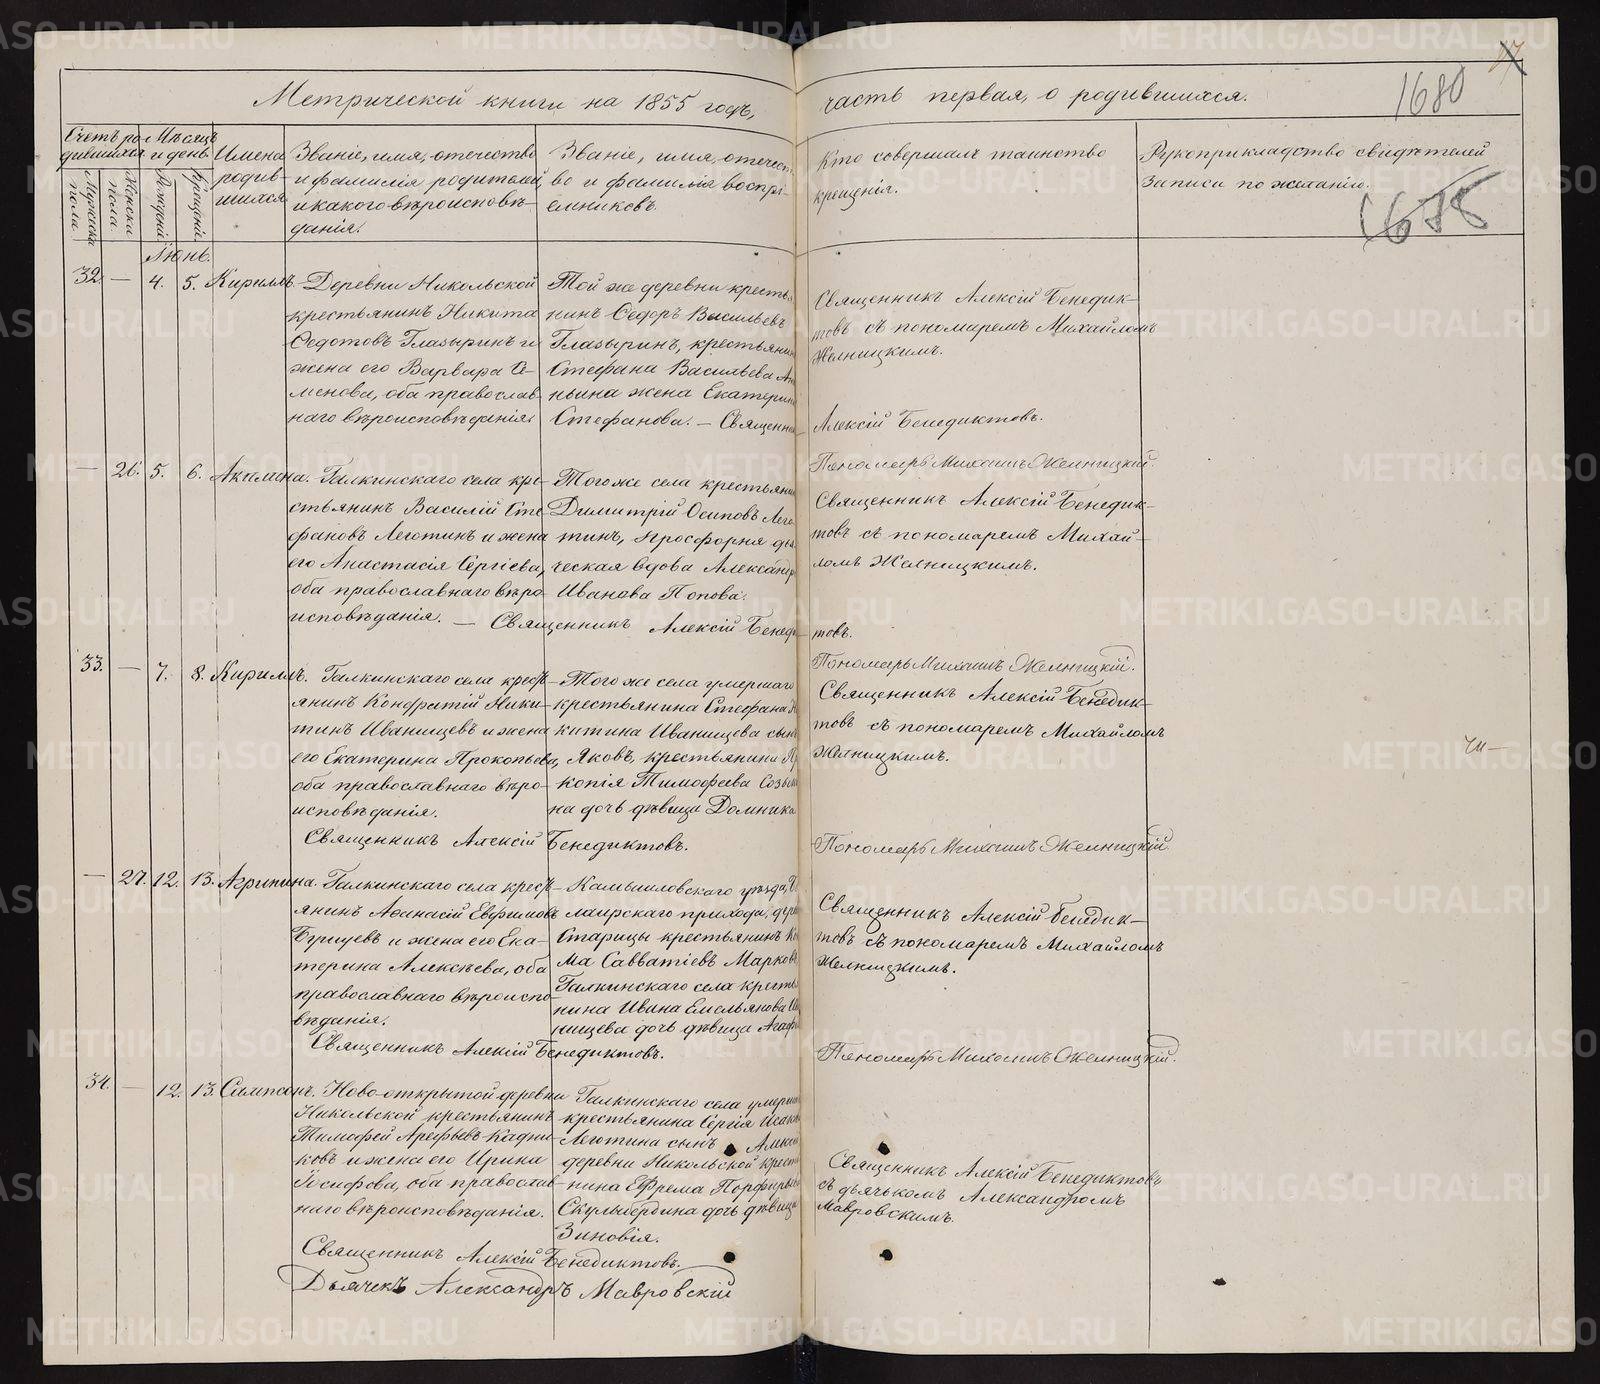 Метрической книги на 1855 годъ,
часть первая, о родившихся.
1680
1678
Счетъ ро-
дившихся
Мужеска пола.
Женска пола.
Мѣсяцъ
и день.
Рожденія
Крещенія.
Имена
родив-
шихся
Званіе, имя, отечество
и фамилія родителей,
и какого вѣроисповѣ-
данія.
Званіе, имя, отечест-
во и фамилія воспрі-
емниковъ.
Кто совершалъ таинство
крещенія.
Рукоприкладство свидѣтелей
записи по желанію.
Июнь.
32. — 4. 5. Кириллъ
Деревни Никольской
крестьянинъ Никита
Федотовъ Глазыринъ и
жена его Варвара Се-
менова, оба православ-
наго вѣроисповѣданія.
Той же деревни крестья
нинъ Федоръ Васильевъ
Глазыринъ, крестьянин
Стефана Васильева
ньина жена Екатерин
Стефанова. — Священни
Священникъ Алексій Бенедик-
товъ съ пономаремъ Михайломъ
Желницкимъ.
Алексій Бенедиктовъ.
Пономарь Михаилъ Желницкій.
— 26. 5. 6. Акилина.
Галкинскаго села кре-
стьянинъ Василій Сте-
фановъ Леготинъ и жена
его Анастасія Сергіева,
оба православнаго вѣро-
исповѣданія. — Священникъ Алексій Бенеди
Того же села крестьянин
Димитрій Осиповъ Лего
тинъ, просфорня дья
ческая вдова Александр
Иванова Попова.
Священникъ Алексій Бенедик-
товъ съ пономаремъ Михай-
ломъ Желницкимъ.
товъ.
Пономарь Михаилъ Желницкій.
33. — 7. 8. Кириллъ.
Галкинскаго села крест-
янинъ Кондратій Ники-
тинъ Иванищевъ и жена
его Екатерина Прокопьева,
оба православнаго вѣро-
исповѣданія.
Священникъ Алексій Бенедиктовъ.
Того же села умершаго
крестьянина Стефана Н
китина Иванищева сын
Яковъ, крестьянина Пр
копія Тимофеева Созы
на дочь дѣвица Домника
Священникъ Алексій Бенедик-
товъ съ пономаремъ Михайломъ
Желницкимъ.
Пономарь Михаилъ Желницкій.
— 27. 12. 13. Агрипина.
Галкинскаго села крест-
янинъ Аѳанасій Евфимовъ
Бурцевъ и жена его Ека-
терина Алексѣева, оба
православнаго вѣроиспо-
вѣданія.
Священникъ Алексій Бенедиктовъ.
Камышловскаго уѣзда,
лаирскаго прихода, дер
Старицы крестьянинъ Ко
ма Савватіевъ Марков
Галкинскаго села кресть
нина Ивана Емельянова И
нищева дочь дѣвица Агаф
Священникъ Алексій Бенедик-
товъ съ пономаремъ Михайломъ
Желницкимъ.
Пономарь Михаилъ Желницкій.
34. — 12. 13. Сампсонъ.
Ново-открытой деревни
Никольской крестьянинъ
Тимофей Арефьевъ Кадни-
ковъ и жена его Ирина
Іосифова, оба православ-
наго вѣроисповѣданія.
Священникъ Алексій Бенедиктовъ.
Дьячекъ Александръ Мавровскій
Галкинскаго села умерш
крестьянина Сергія Исак
Леготина сынъ Алекс
деревни Никольской крест
нина Ефрема Порфирье
Скулыбердина дочь дѣвица
Зиновія.
Священникъ Алексій Бенедиктовъ
съ дьячкомъ Александромъ
Мавровскимъ.
METRIKI.GASO-URAL.RU